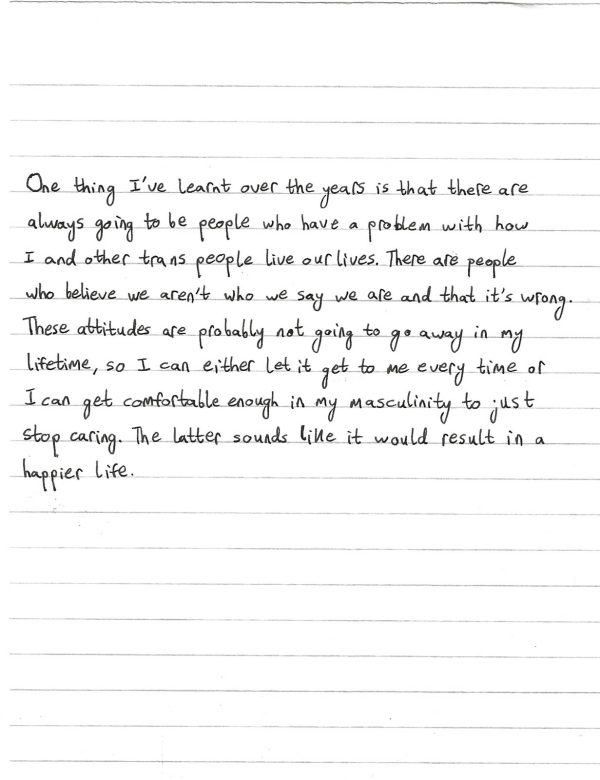 One thing I've learnt over the years is that there are
always going to be people who have a problem with how
I and other trans people live our lives. There are people
who believe we aren't who we say we are and that it's wrong.
These attitudes are probably not going to go away in my
lifetime, so I can either let it get to me every time or
I can get comfortable enough in my masculinity to just
stop caring. The latter sounds like it would result in a
happier life.